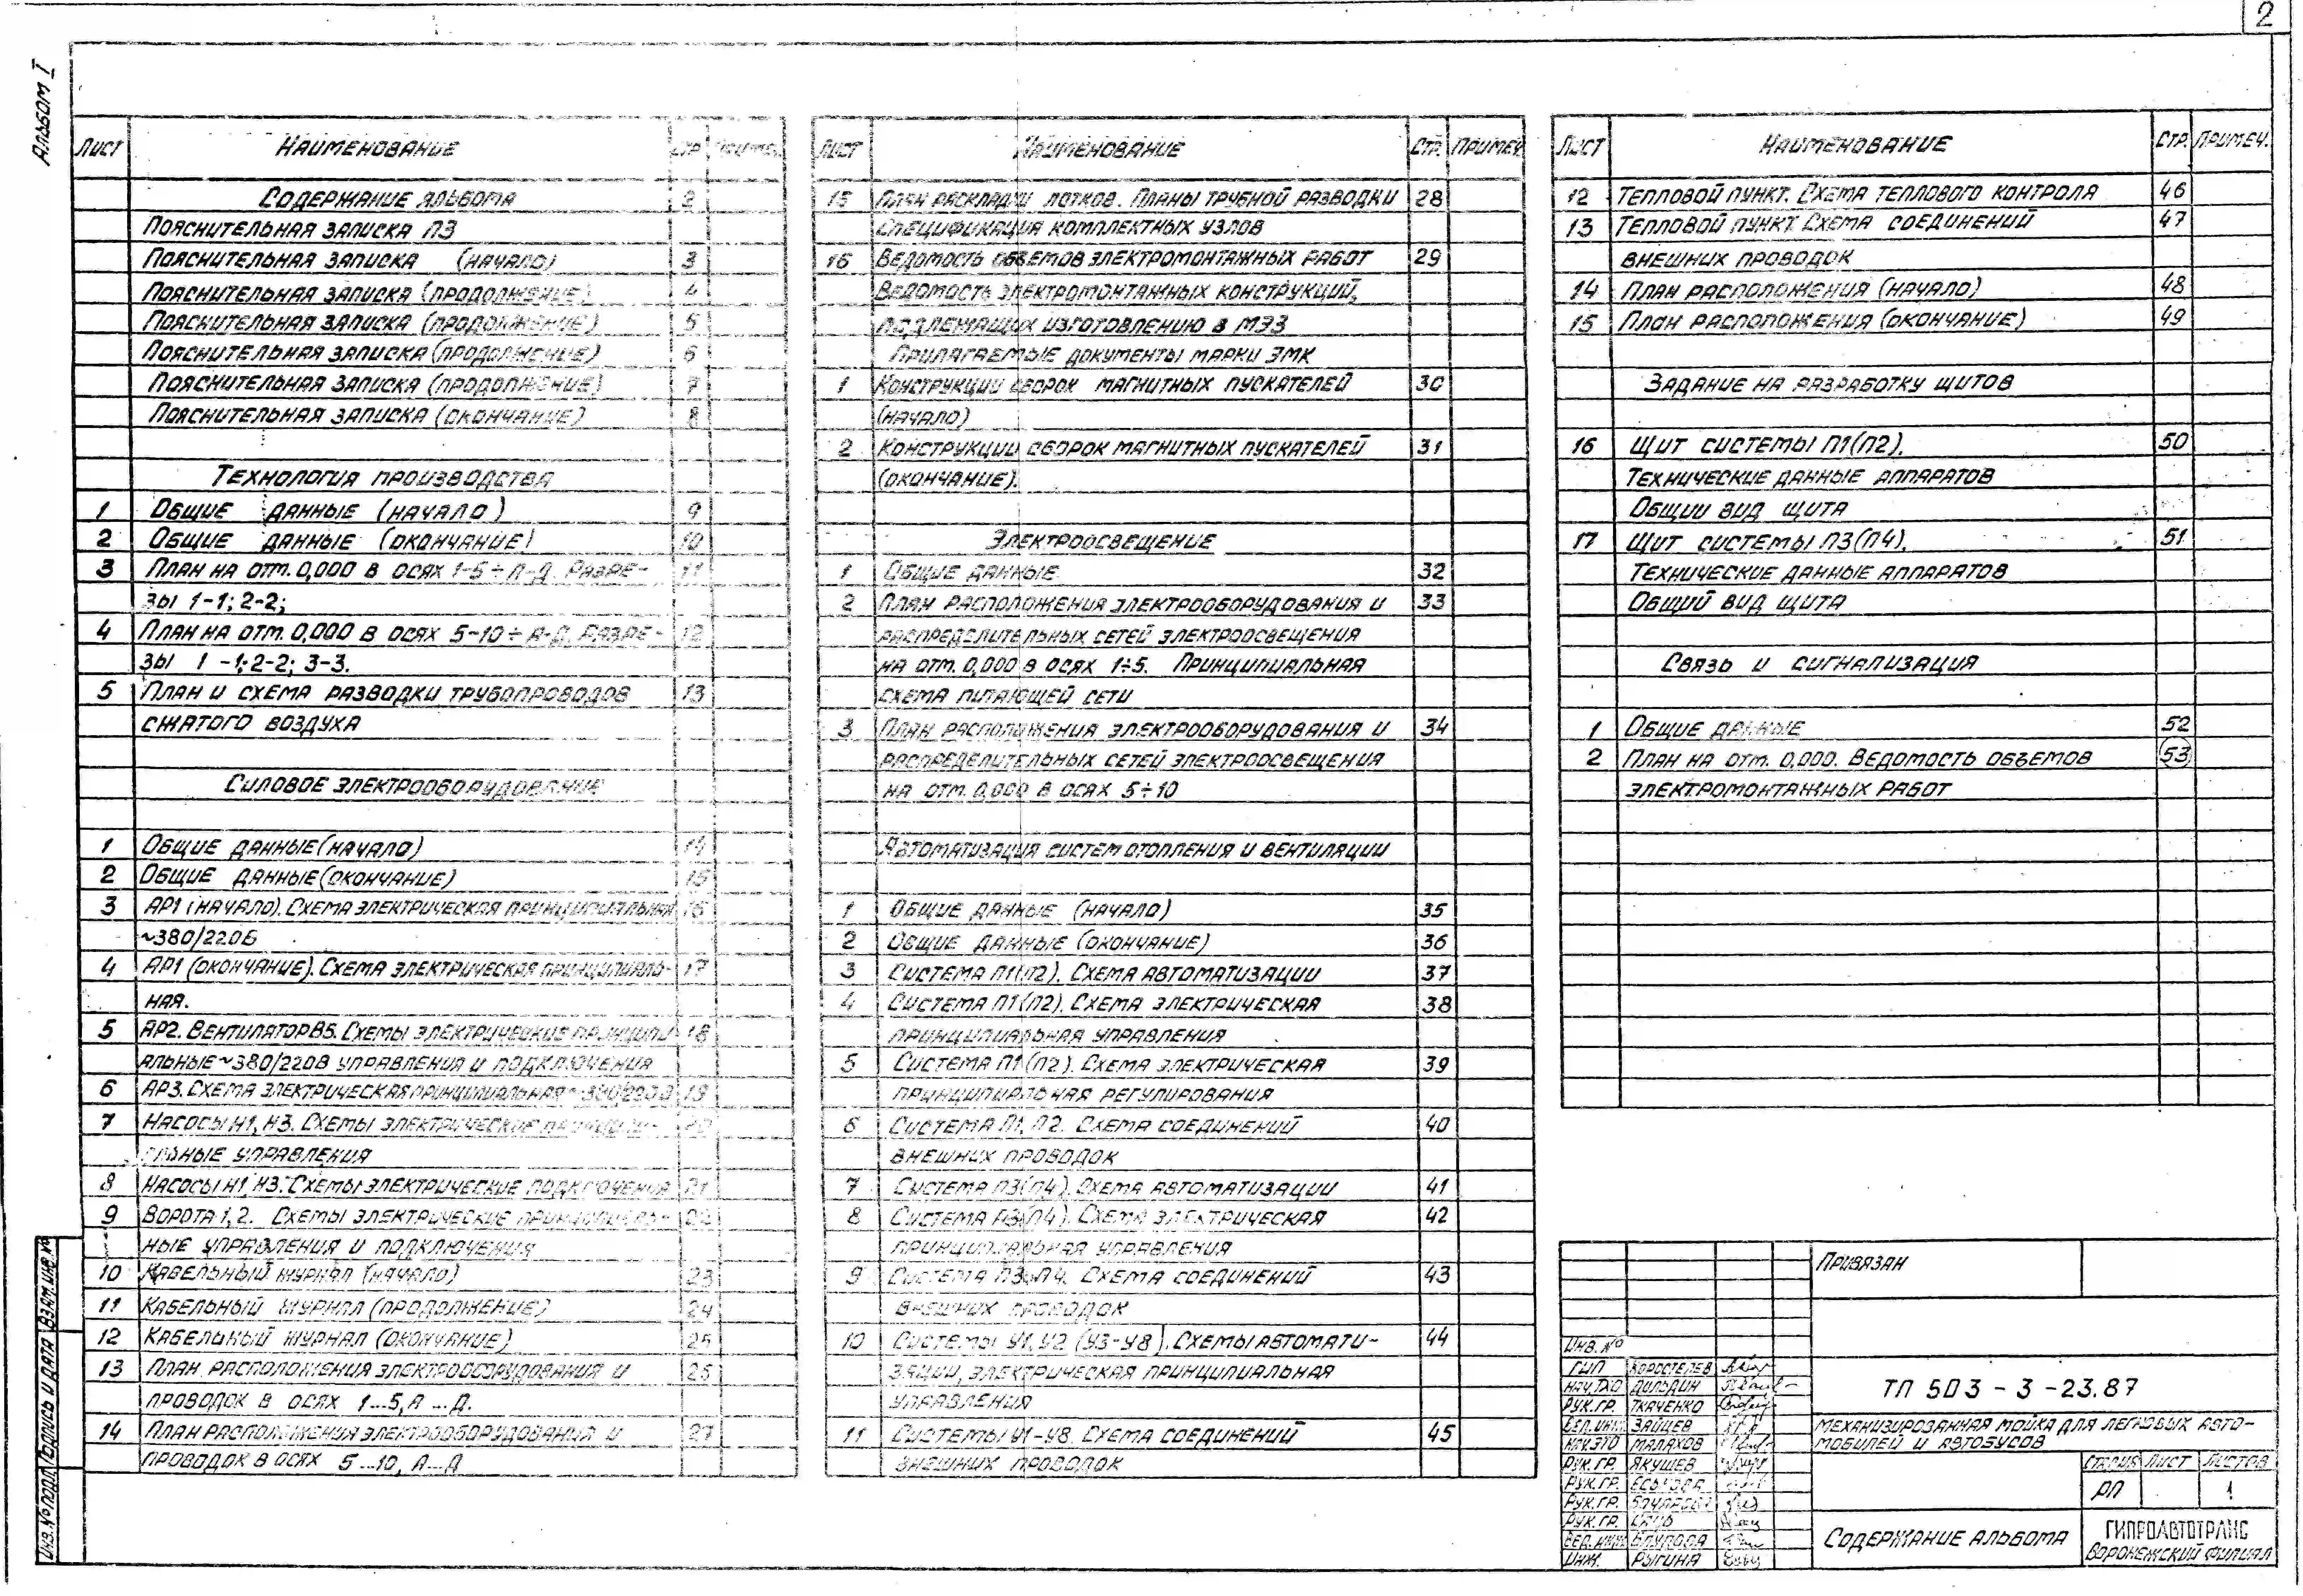 2
Альбом I
Лист Наименование Стр Примеч.
Содержание альбома 2
Пояснительная записка ПЗ
Пояснительная записка (начало) 3
Пояснительная записка (продолжение) 4
Пояснительная записка (продолжение) 5
Пояснительная записка (продолжение) 6
Пояснительная записка (продолжение) 7
Пояснительная записка (окончание) 8
Технология производства
1 Общие данные (начало) 9
2 Общие данные (окончание) 10
3 План на отм. 0,000 в осях 1-5÷А-Д. Разре- 11
зы 1-1; 2-2;
4 План на отм. 0,000 в осях 5-10÷А-Д. Разре- 12
зы 1-1; 2-2; 3-3.
5 План и схема разводки трубопроводов 13
сжатого воздуха
Силовое электрооборудование
1 Общие данные (начало) 14
2 Общие данные (окончание) 15
3 АР1 (начало). Схема электрическая принципиальная 16
~380/220В
4 АР1 (окончание). Схема электрическая принципиаль- 17
ная.
5 АР2. Вентилятор В5. Схемы электрические принципи- 18
альные ~380/220В управления и подключения
6 АР3. Схема электрическая принципиальная ~380/220В 19
7 Насосы Н1, Н3. Схемы электрические принципи- 20
альные управления
8 Насосы Н1, Н3. Схемы электрические подключения 21
9 Ворота 1, 2. Схемы электрические принципиаль- 22
ные управления и подключения
10 Кабельный журнал (начало) 23
11 Кабельный журнал (продолжение) 24
12 Кабельный журнал (окончание) 25
13 План расположения электрооборудования и 26
проводок в осях 1...5, А...Д.
14 План расположения электрооборудования и 27
проводок в осях 5...10, А...Д
Лист Наименование Стр. Примеч
15 План раскладки лотков. Планы трубной разводки 28
Спецификация комплектных узлов
16 Ведомость объемов электромонтажных работ 29
Ведомость электромонтажных конструкций,
подлежащих изготовлению в МЭЗ
Прилагаемые документы марки ЭМК
1 Конструкции сборок магнитных пускателей 30
(начало)
2 Конструкции сборок магнитных пускателей 31
(окончание).
Электроосвещение
1 Общие данные 32
2 План расположения электрооборудования и 33
распределительных сетей электроосвещения
на отм. 0,000 в осях 1÷5. Принципиальная
схема питающей сети
3 План расположения электрооборудования и 34
распределительных сетей электроосвещения
на отм. 0,000 в осях 5÷10
Автоматизация систем отопления и вентиляции
1 Общие данные (начало) 35
2 Общие данные (окончание) 36
3 Система П1(П2). Схема автоматизации 37
4 Система П1(П2). Схема электрическая 38
принципиальная управления
5 Система П1(П2). Схема электрическая 39
принципиальная регулирования
6 Система П1, П2. Схема соединений 40
внешних проводок
7 Система П3(П4). Схема автоматизации 41
8 Система П3(П4). Схема электрическая 42
принципиальная управления
9 Система П3, П4. Схема соединений 43
внешних проводок
10 Системы У1, У2 (У3-У8). Схемы автомати- 44
зации, электрическая принципиальная
управления
11 Системы У1-У8. Схема соединений 45
внешних проводок
Лист Наименование Стр. Примеч.
12 Тепловой пункт. Схема теплового контроля 46
13 Тепловой пункт. Схема соединений 47
внешних проводок
14 План расположения (начало) 48
15 План расположения (окончание) 49
Задание на разработку щитов
16 Щит системы П1(П2). 50
Технические данные аппаратов
Общии вид щита
17 Щит системы П3(П4). 51
Технические данные аппаратов
Общий вид щита
Связь и сигнализация
1 Общие данные 52
2 План на отм. 0,000. Ведомость объемов 53
электромонтажных работ
Привязан
Инв. №
ГИП Коростелев
Нач. ТХО Дильдин
Рук. гр. Ткаченко
Вед. инж. Зайцев
Нач. ЭТО Малахов
Рук. гр. Якушев
Рук. гр.
Рук. гр.
Рук. гр.
Вед. инж.
Инж. Рыгина
ТП 503-3-23.87
Механизированная мойка для легковых авто-
мобилей и автобусов
Стадия Лист Листов
РП 1
Содержание альбома
Гипроавтотранс
Воронежский филиал
Инв. № подл. Подпись и дата Взам. инв. №